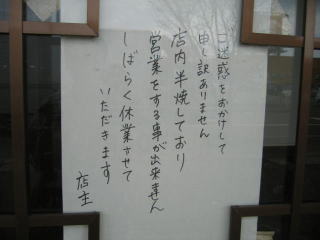 ご迷惑をおかけして
申し訳ありません
店内半焼しており
営業をする事が出来ません
しばらく休業させて
いただきます
店主